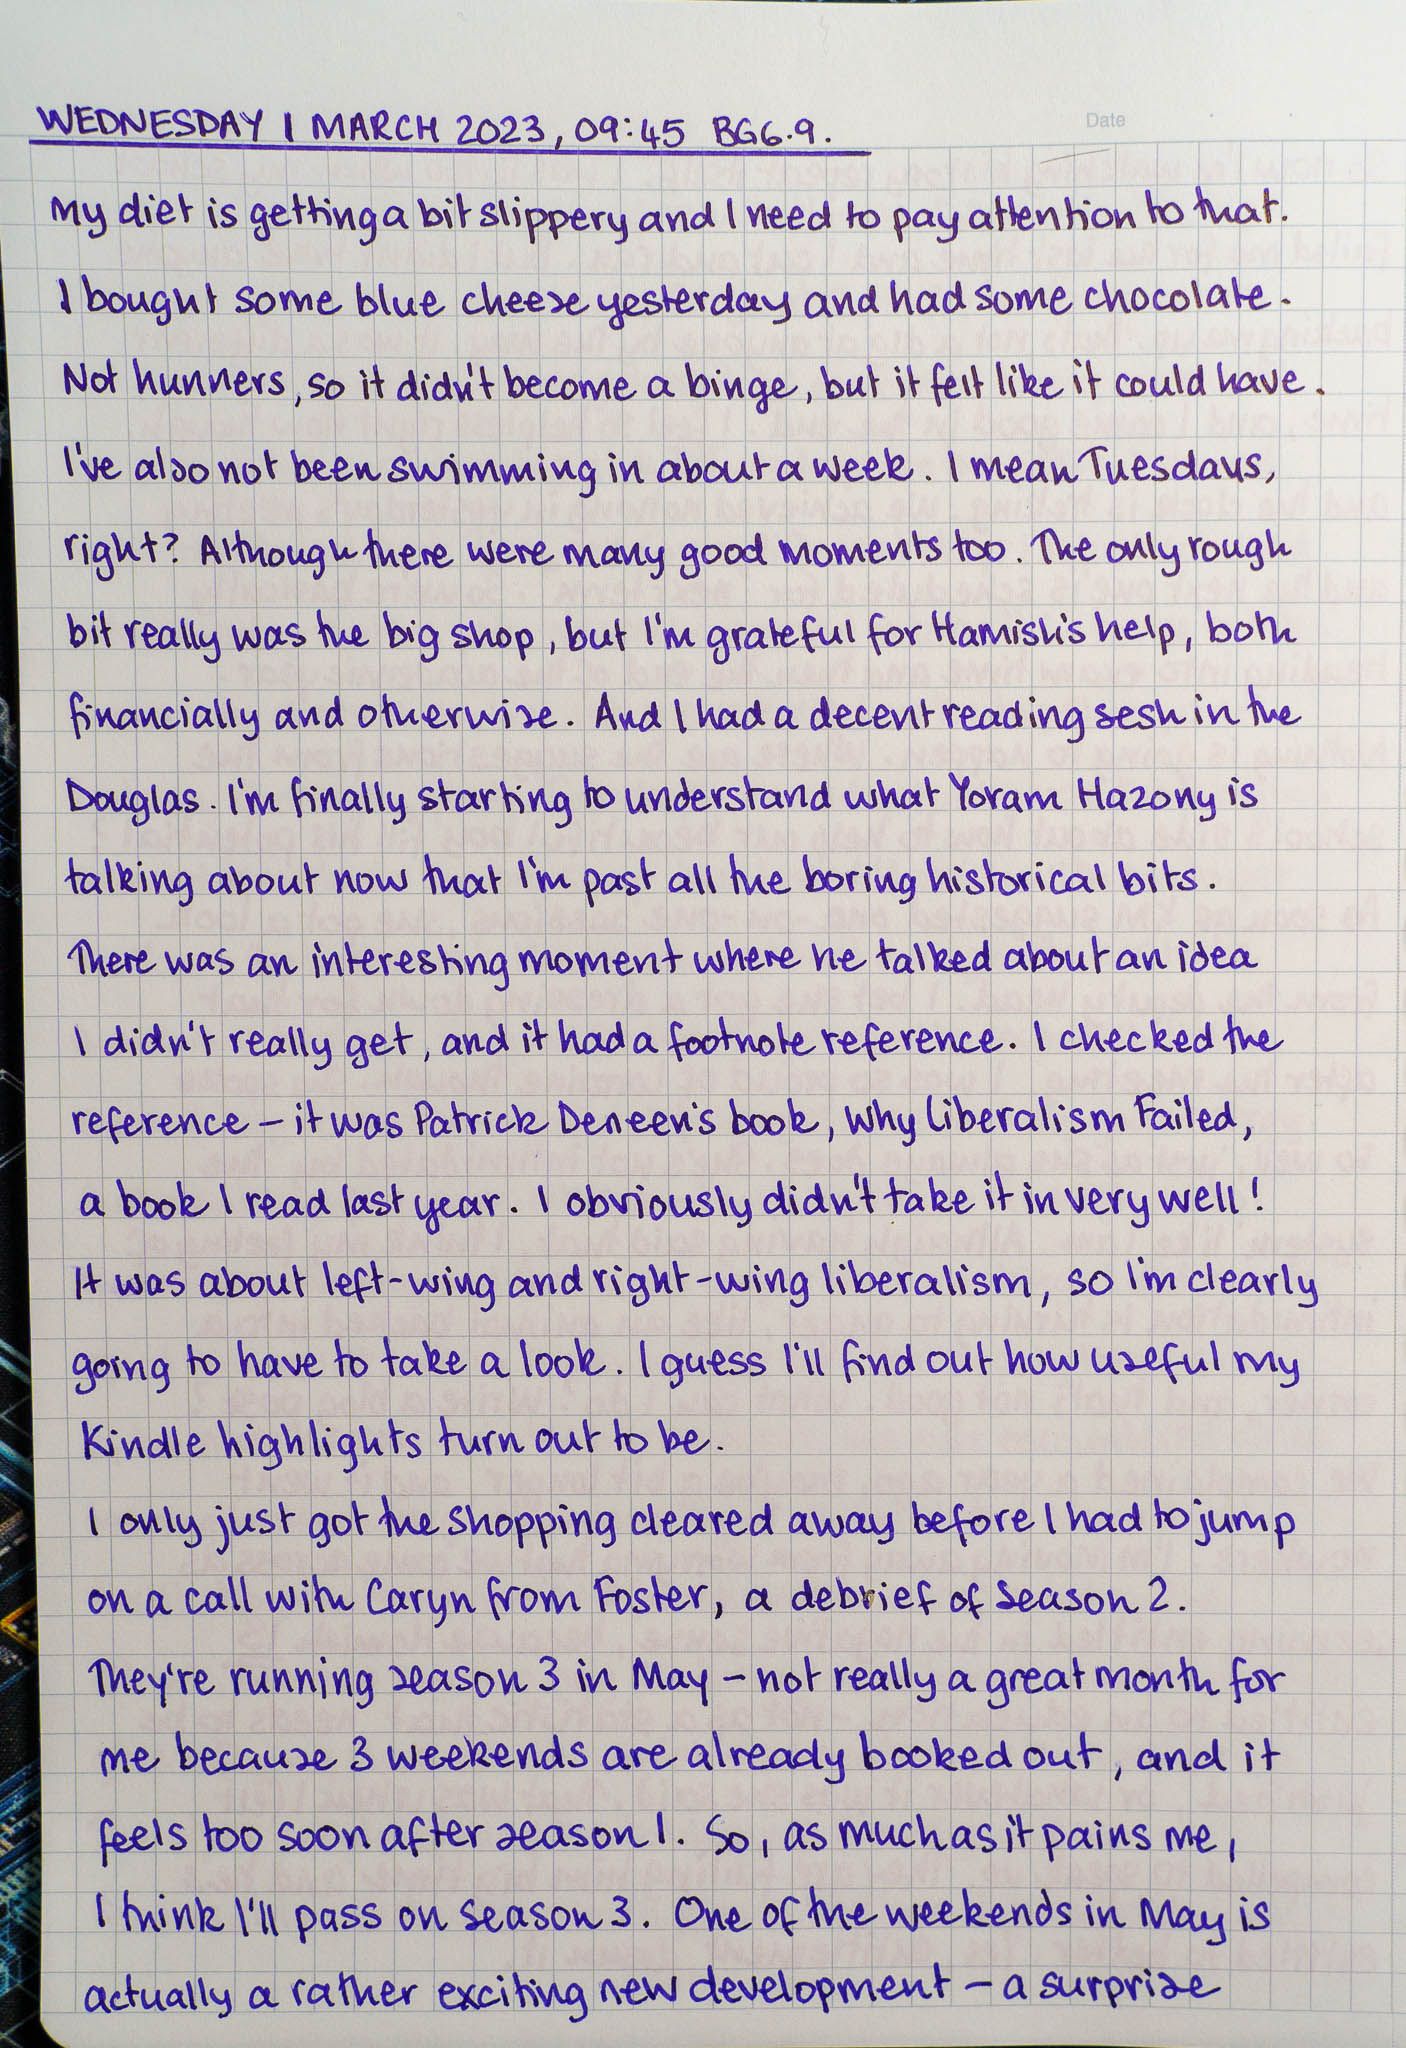 WEDNESDAY 1 MARCH 2023, 09:45 BG6.9.
Date
My diet is getting a bit slippery and I need to pay attention to that.
I bought some blue cheese yesterday and had some chocolate.
Not hunners, so it didn't become a binge, but it felt like it could have.
I've also not been swimming in about a week. I mean Tuesdays,
right? Although there were many good moments too. The only rough
bit really was the big shop, but I'm grateful for Hamish's help, both
financially and otherwise. And I had a decent reading sesh in the
Douglas. I'm finally starting to understand what Yoram Hazony is
talking about now that I'm past all the boring historical bits.
There was an interesting moment where he talked about an idea
I didn't really get, and it had a footnote reference. I checked the
reference – it was Patrick Deneen's book, Why Liberalism Failed,
a book I read last year. I obviously didn't take it in very well!
It was about left-wing and right-wing liberalism, so I'm clearly
going to have to take a look. I guess I'll find out how useful my
Kindle highlights turn out to be.
I only just got the shopping cleared away before I had to jump
on a call with Caryn from Foster, a debrief of Season 2.
They're running season 3 in May – not really a great month for
me because 3 weekends are already booked out, and it
feels too soon after season 1. So, as much as it pains me,
I think I'll pass on season 3. One of the weekends in May is
actually a rather exciting new development – a surprise